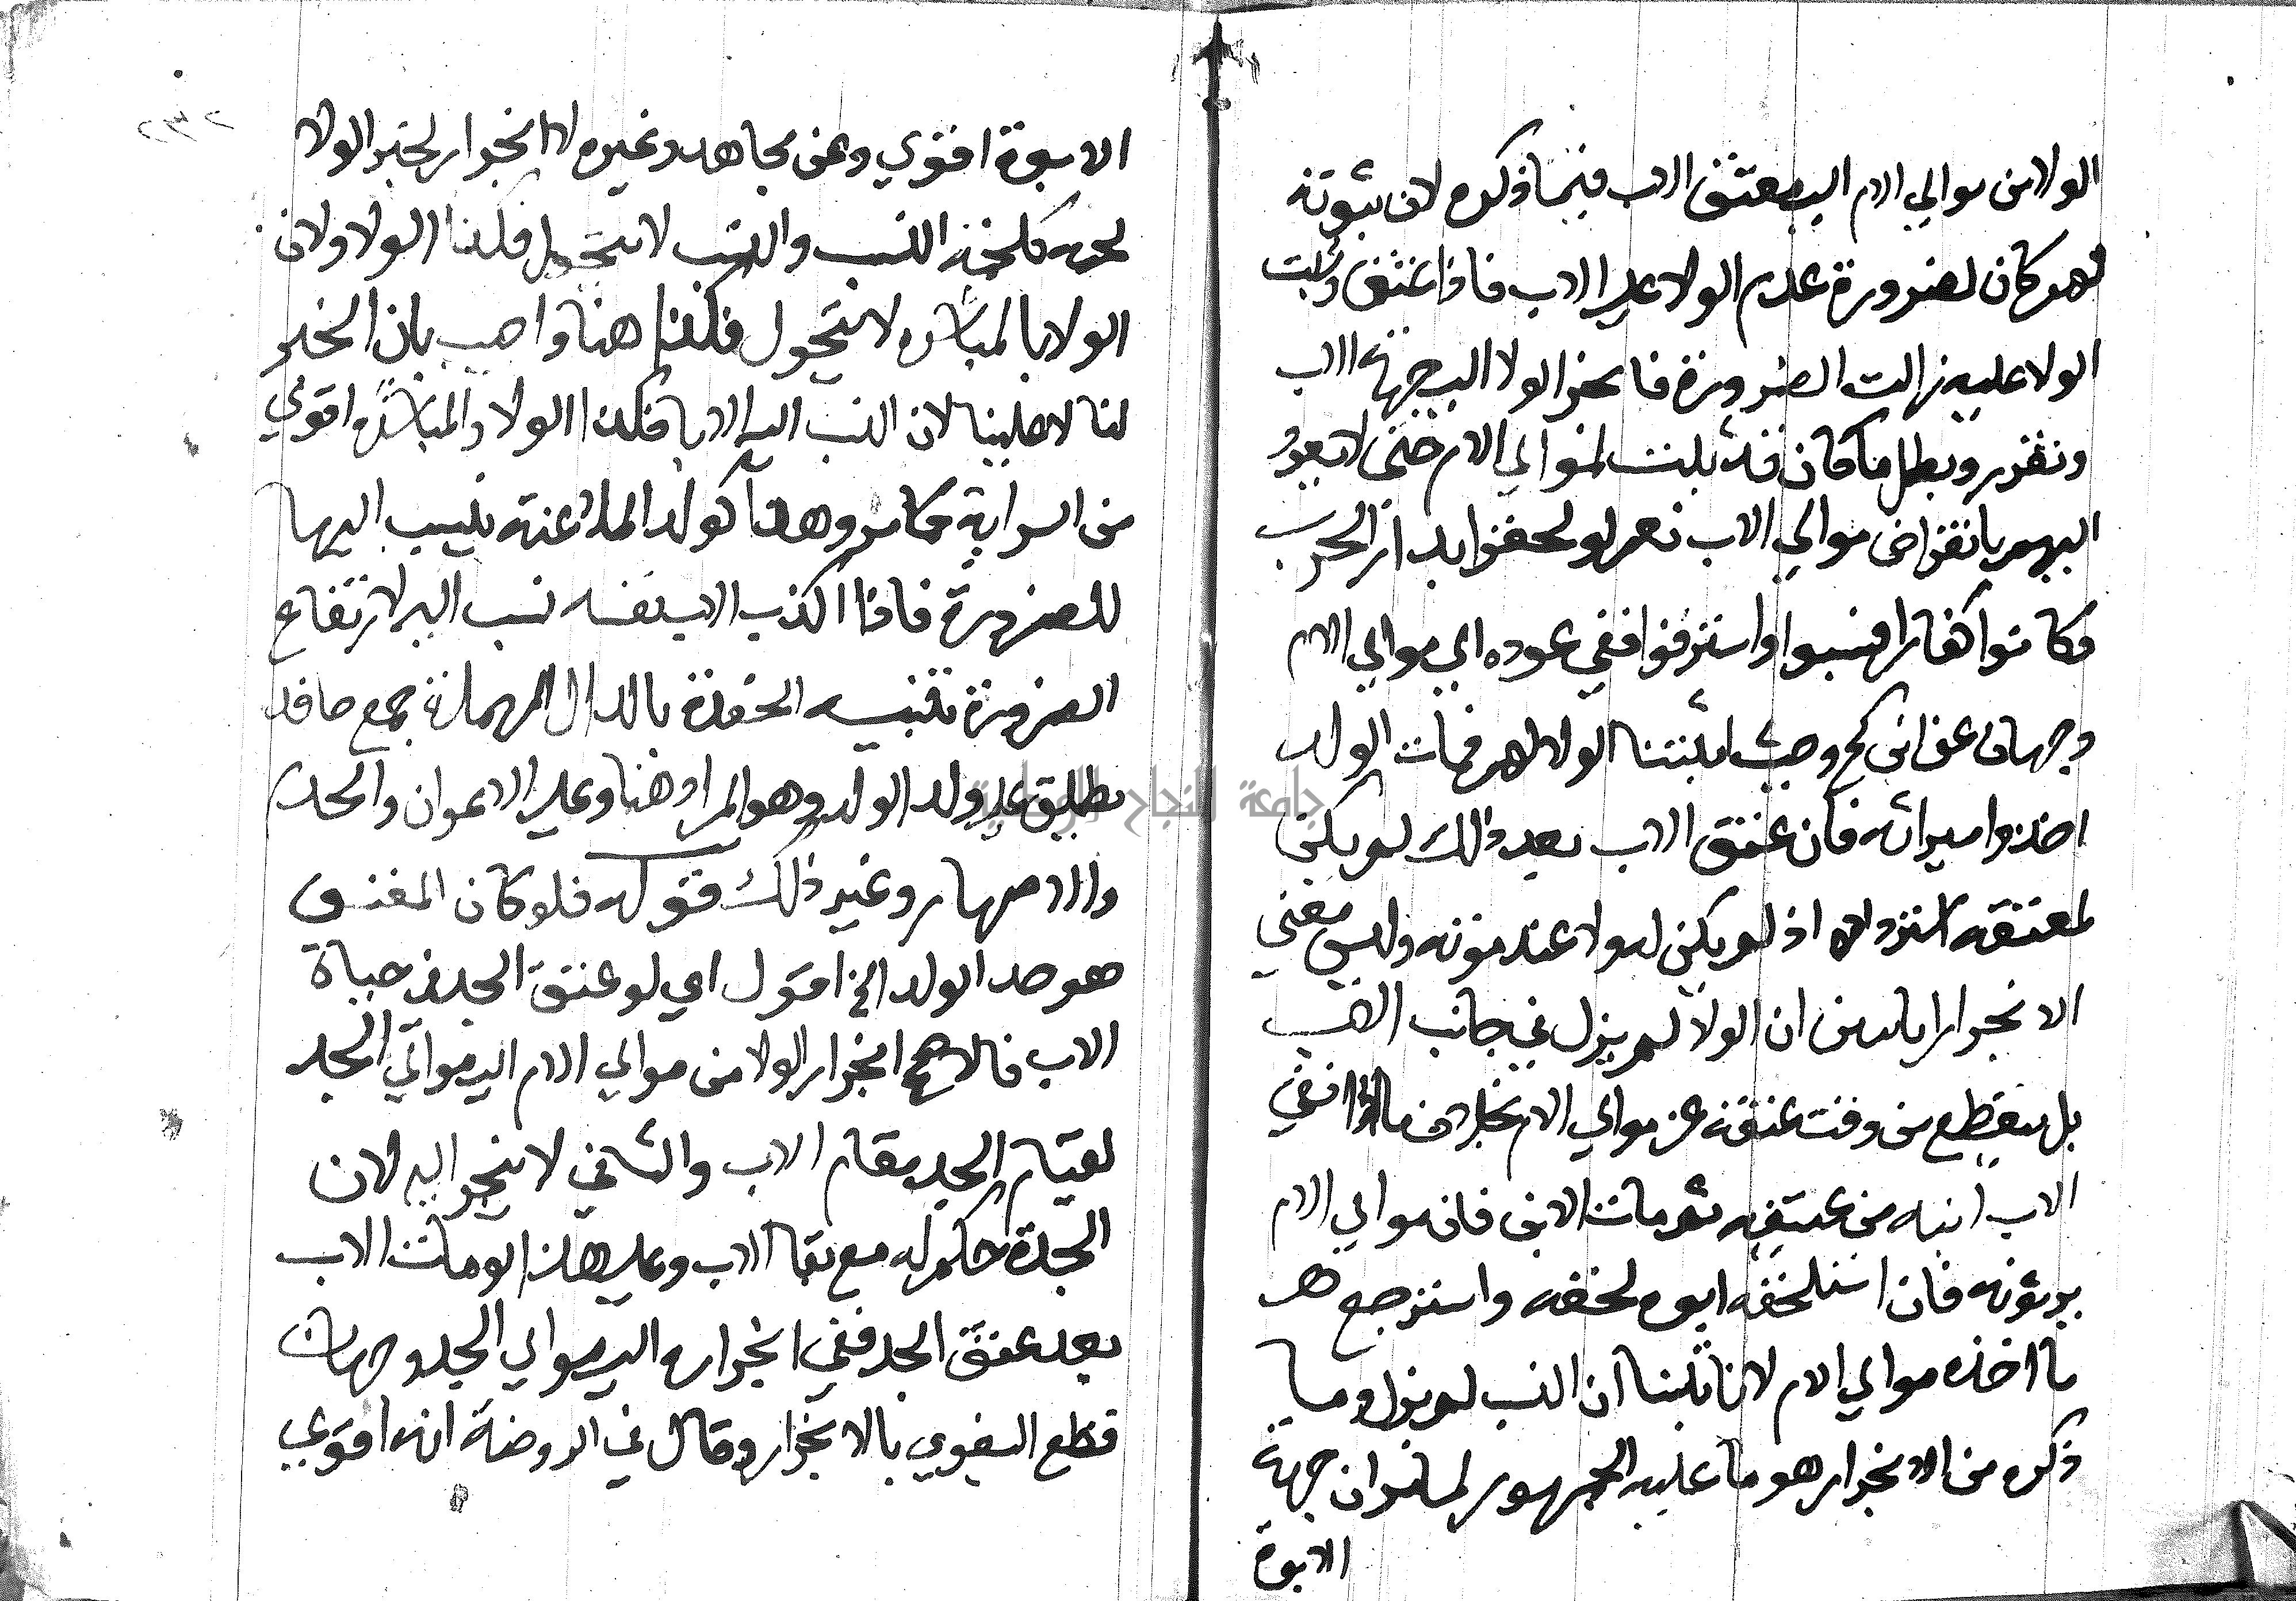 الولا من موالي الام الى معتق الاب فيما ذكره لان ثبوته
لهم كان لضرورة عدم الولا على الاب فاذا عتق وثبت
الولا عليه زالت الضرورة فانجر الولا الى جهة الاب
وتقرر وبطل ما كان قد ثبت لموالي الام حتى لا يعود
اليهم بانقراض موالي الاب نعم لو لحقوا بدار الحرب
وكانوا كفارا فسبوا واسترقوا ففي عوده الى موالي الام
وجهان عن ابن كج وحيث اثبتنا الولا لهم فمات الولد
اخذوا ميراثه فان عتق الاب بعد ذلك لم يكن
لمعتقه استرداده اذ لم يكن له ولا عند موته وليس معنى
الانجرار ان الولا لم يزل في جانب الاب
بل ينقطع من وقت عتقه عن موالي الام بخلاف ما اذا نفى
الاب ابنه من عتيقه ثم مات الابن فان موالي الام
يرثونه فان استلحقه ابوه لحقه واسترجع هو
ما اخذه موالي الام لانا ثبتنا ان النسب لم يزل وما
ذكره من الانجرار هو ما عليه الجمهور لما مر ان جهة
الابوة
٢٣٢
الابوة اقوي وعن مجاهد وغيره لا انجرار لخبر الولا
لحمة كلحمة النسب والنسب لا يتحول فكذا الولا ولان
الولا بالمباشرة لا يتحول فكذا هنا واجيب بان الخبر
لنا لا علينا لان النسب الى الابا فكذا الولا والمباشرة اقوي
من السراية كما مر وهذا كولد الملاعنة ينسب اليها
للضرورة فاذا اكذب الاب نفسه نسب اليه لارتفاع
الضرورة تنبيه الحفدة بالدال المهملة جمع حافد
يطلق على ولد الولد وهو المراد هنا وعلى الاعوان والخدم
والاصهار وغير ذلك قوله فلو كان المعتق
هو جد الولد الخ اقول اي لو عتق الجد في حياة
الاب فالاصح انجرار الولا من موالي الام الى موالي الجد
لقيام الجد مقام الاب والثاني لا ينجر اليه لان
الجد لا حكم له مع بقا الاب وعلى هذا لو مات الاب
بعد عتق الجد ففي انجراره الى موالي الجد وجهان
قطع البغوي بالانجرار وقال في الروضة انه اقوي
جامعة النجاح الوطنية